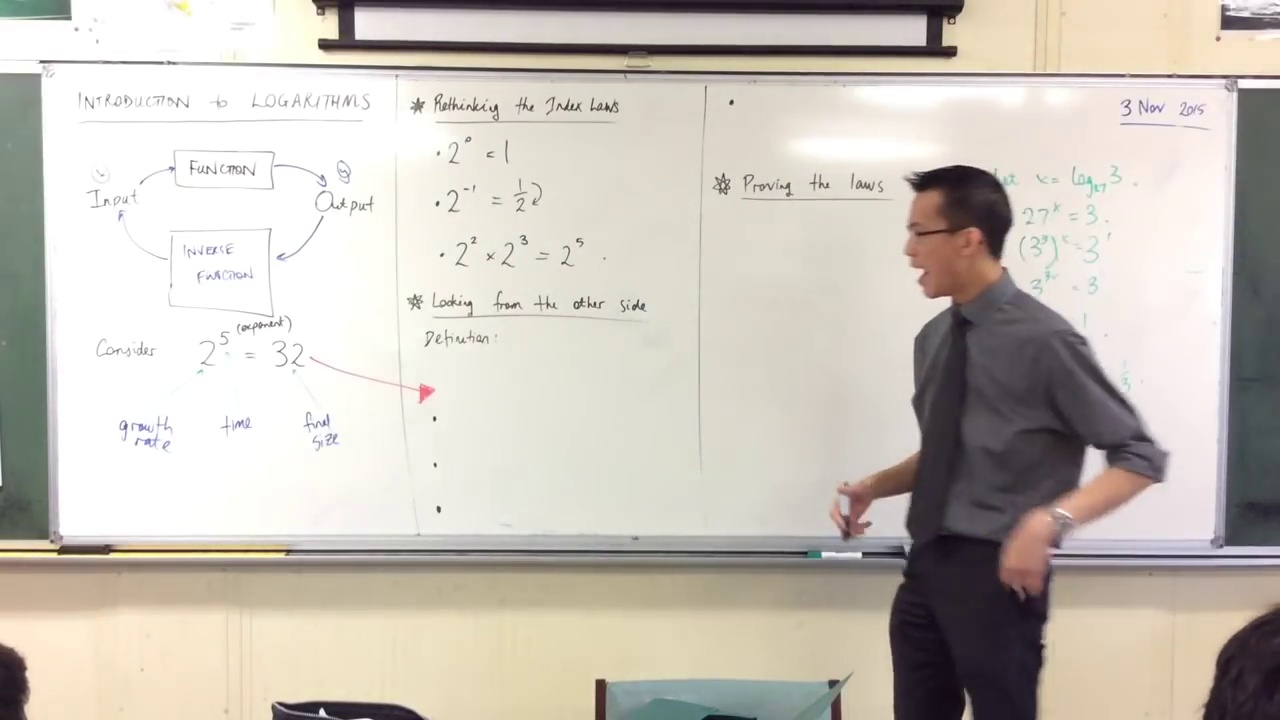 INTRODUCTION to LOGARITHMS
FUNCTION
Input
Output
INVERSE
FUNCTION
(exponent)
Consider 2⁵ = 32
growth
rate
time
final
size
* Rethinking the Index Laws
• 2⁰ = 1
• 2⁻¹ = 1/2
• 2² × 2³ = 2⁵ .
* Looking from the other side
Definition:
•
•
•
•
* Proving the laws
3 Nov 2015
x = log₂₇ 3 .
27ˣ = 3 .
(3³)ˣ = 3¹
3³ˣ = 3
1
1/3 .